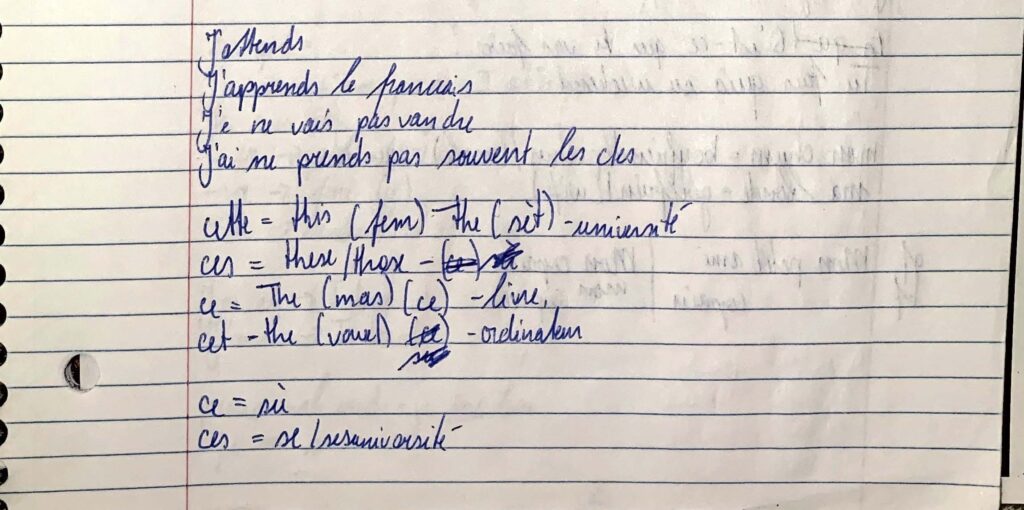 J'attends
J'apprends le francais
J'e ne vais pas vandre
J'ai ne prends pas souvent les cles
cette = this (fem) - the (sèt) - université
ces = these/those -
ce = The (mas) (ce) - livre,
cet - the (vowel) - ordinateur
ce = sù
ces = se / sesuniversité